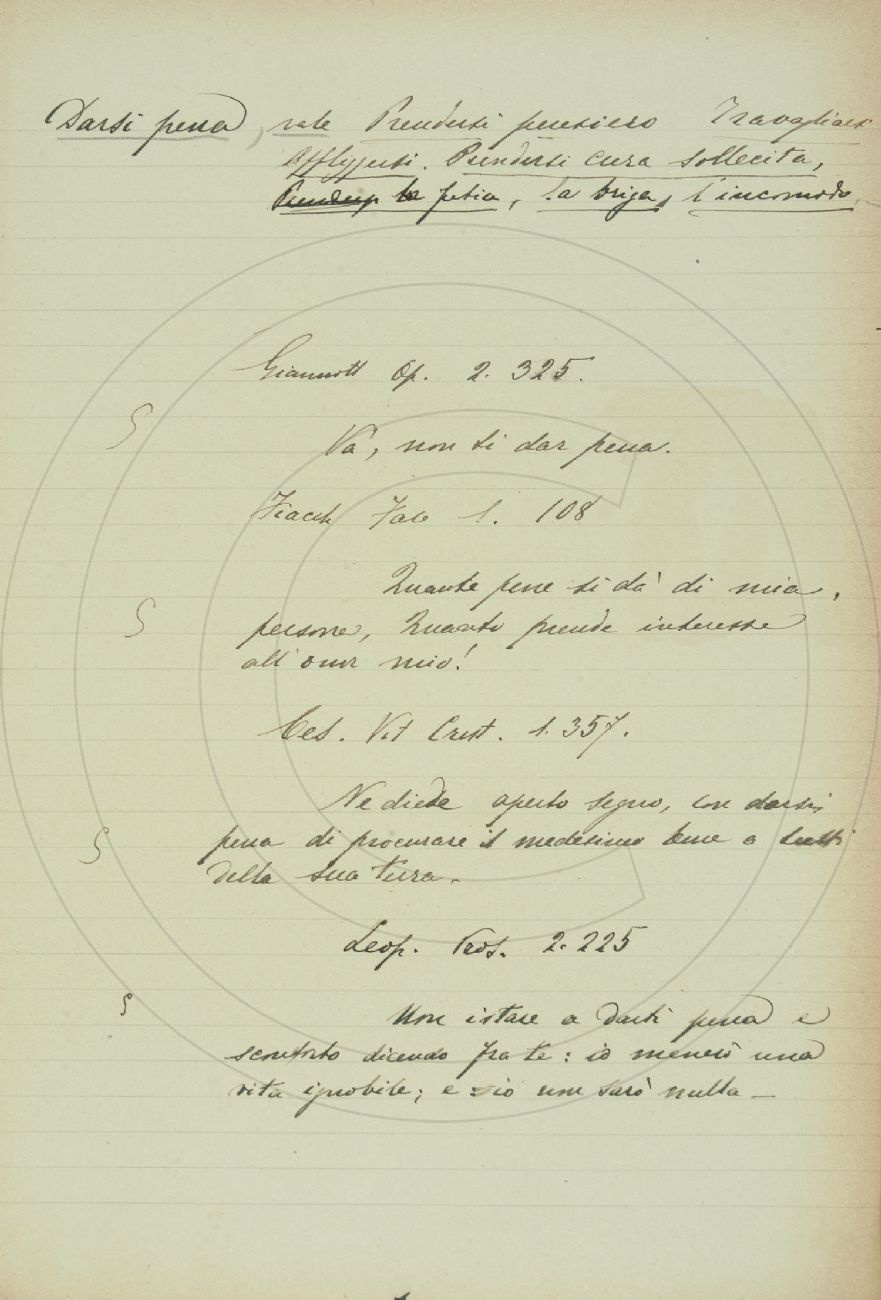 Darsi pena, vale Prendersi pensiero Travagliarsi
Affliggersi. Prendersi cura sollecita,
la fatica, la briga, l'incomodo.
Giannott Op. 2. 325.
Va, non ti dar pena.
Fiacch Fav 1. 108
Quante pene si dà di mia,
persona, Quanto prende interesse
all'onor mio!
Ces. Vit Crist. 1. 357.
Ne diede aperto segno, con darsi
pena di procurare il medesimo bene a tutti
della sua terra.
Leop. Pros. 2. 225
Non istare a darti pena e
sconforto dicendo fra te: io menerò una
vita ignobile; e io non sarò nulla —